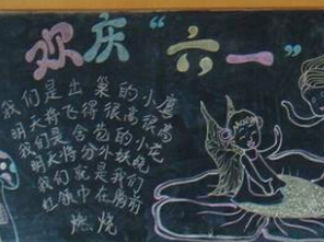 欢庆“六一”
我们是出巢的小鹰
明天将飞得很高很高
我们是含苞的小花
明天将分外妖娆
我们就是我们
红领巾在胸前
燃烧